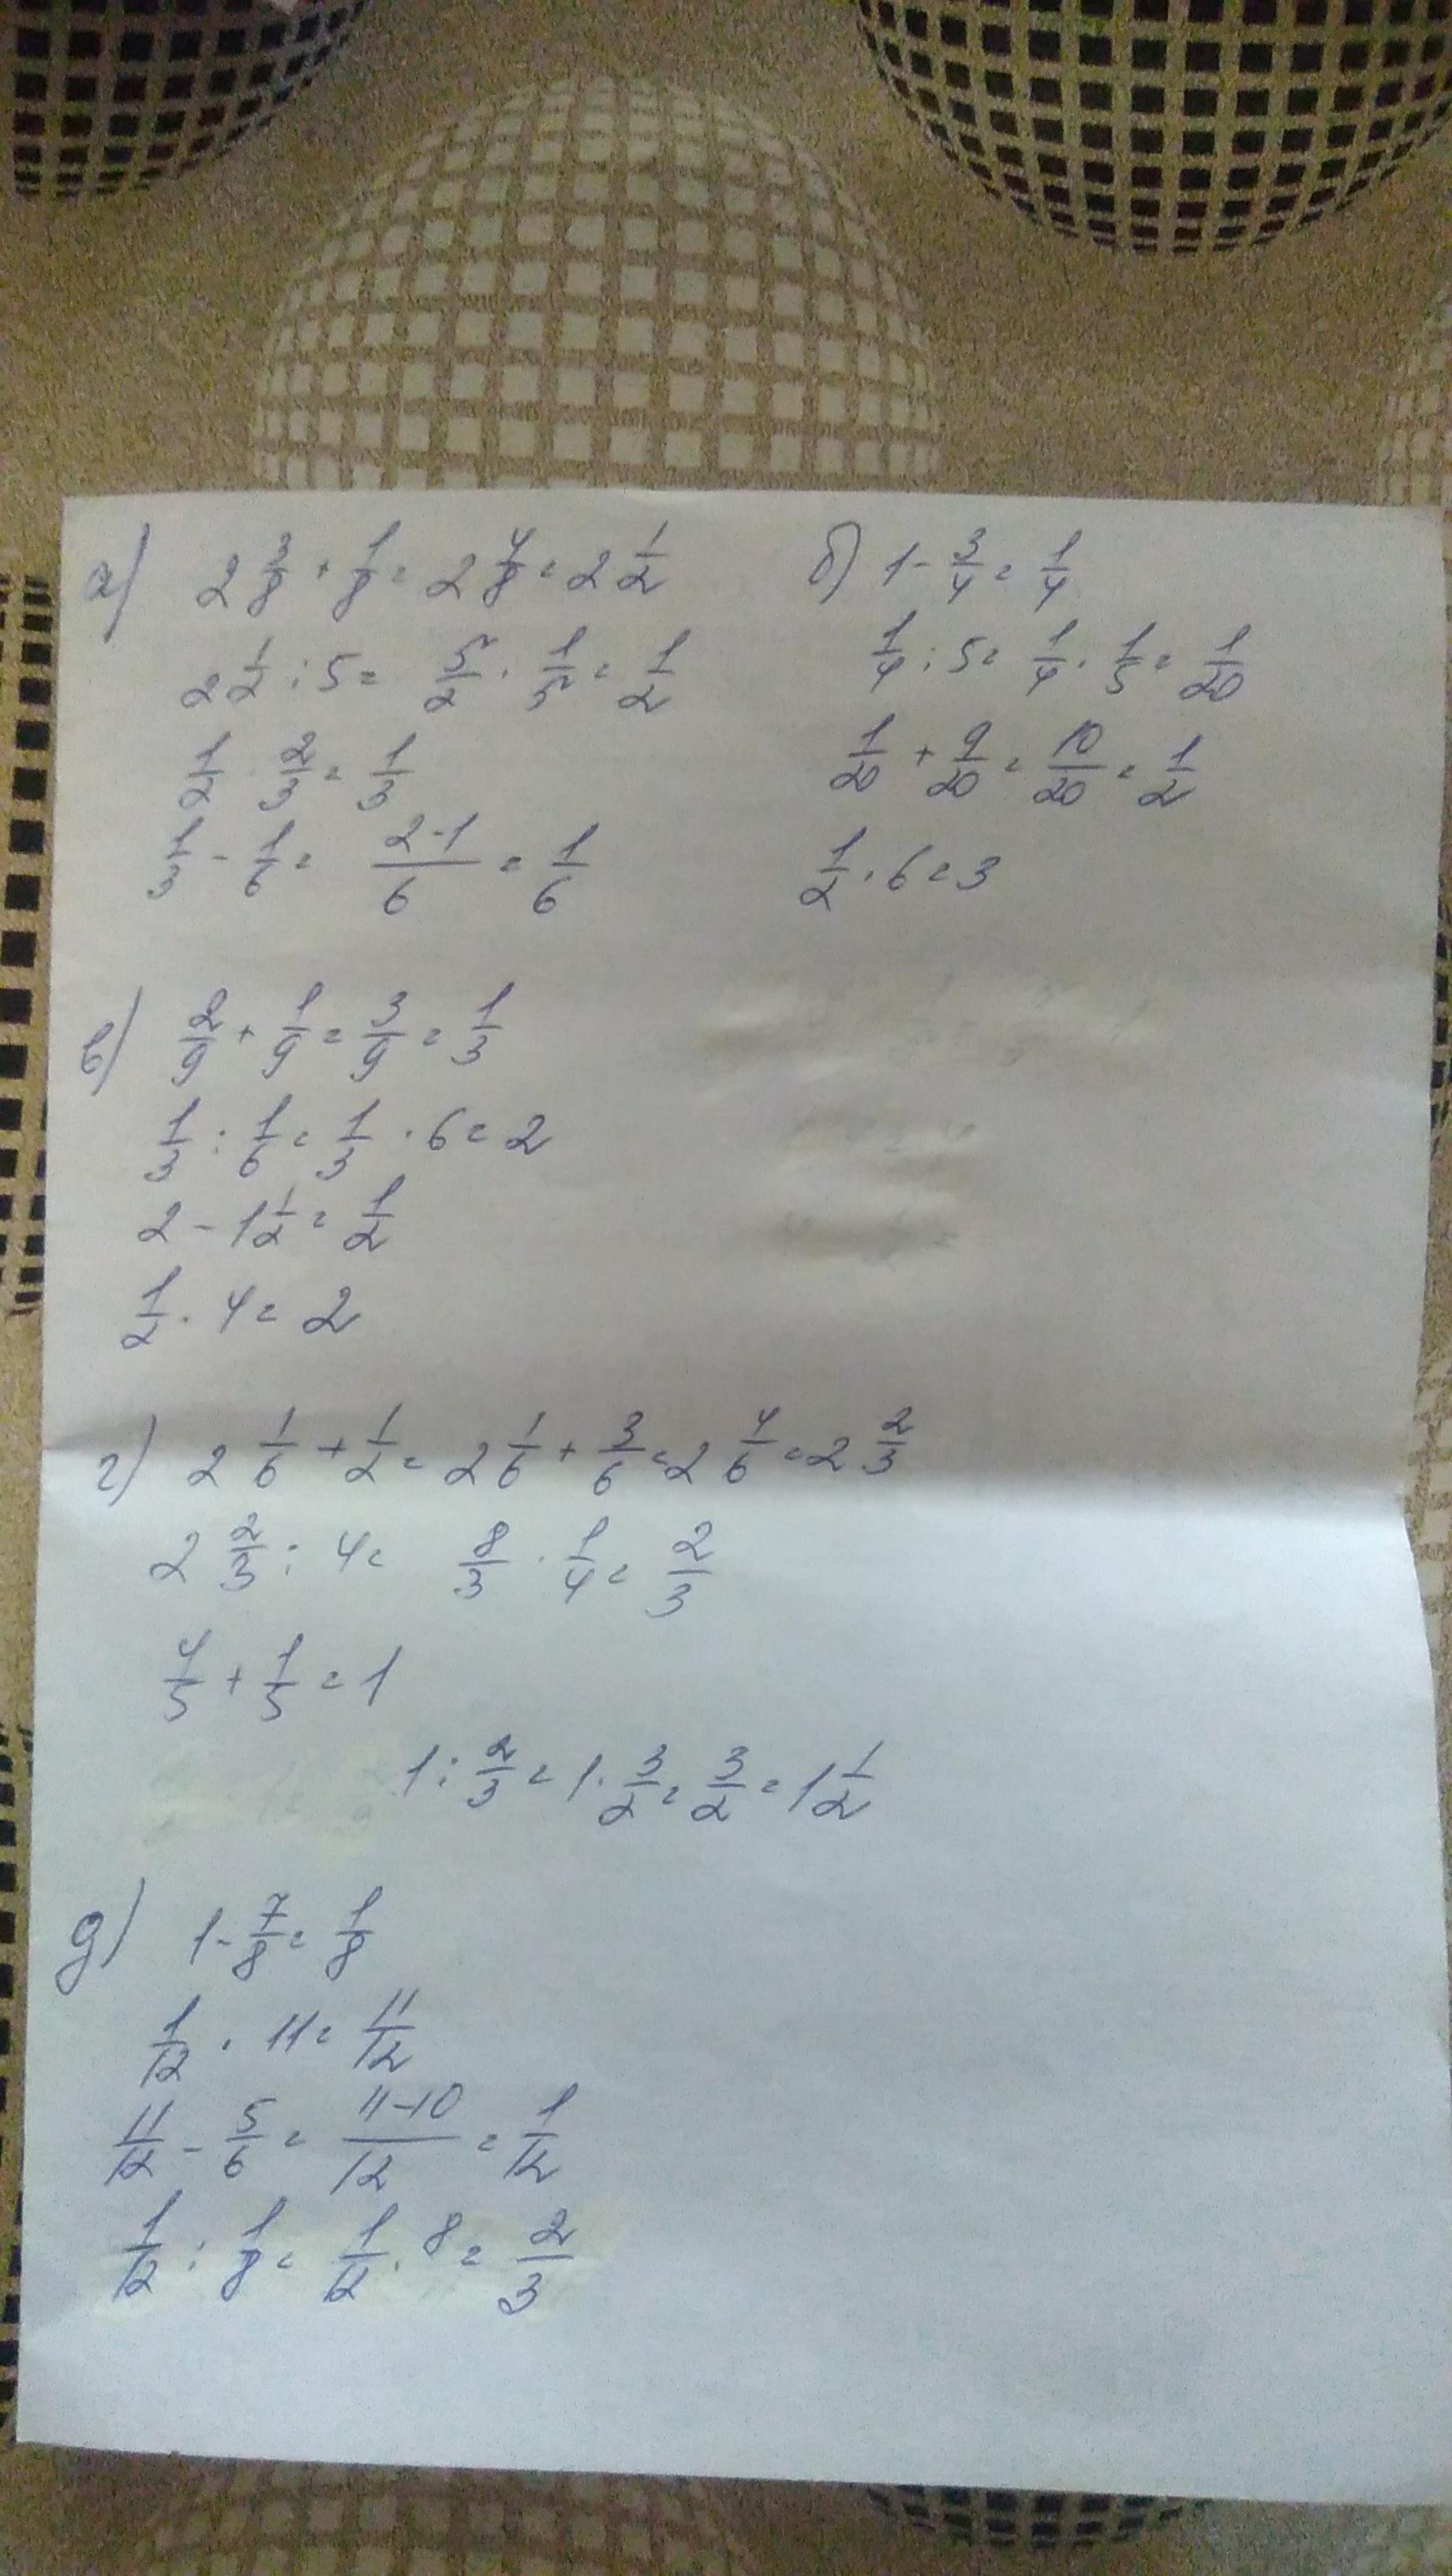 а) 2 3/8 + 1/8 = 2 4/8 = 2 1/2
2 1/2 : 5 = 5/2 · 1/5 = 1/2
1/2 · 2/3 = 1/3
1/3 - 1/6 = 2-1/6 = 1/6
б) 1 - 3/4 = 1/4
1/4 : 5 = 1/4 · 1/5 = 1/20
1/20 + 9/20 = 10/20 = 1/2
1/2 · 6 = 3
в) 2/9 + 1/9 = 3/9 = 1/3
1/3 : 1/6 = 1/3 · 6 = 2
2 - 1 1/2 = 1/2
1/2 · 4 = 2
г) 2 1/6 + 1/2 = 2 1/6 + 3/6 = 2 4/6 = 2 2/3
2 2/3 : 4 = 8/3 · 1/4 = 2/3
4/5 + 1/5 = 1
1 : 2/3 = 1 · 3/2 = 3/2 = 1 1/2
д) 1 - 7/8 = 1/8
1/12 · 11 = 11/12
11/12 - 5/6 = 11-10/12 = 1/12
1/12 : 1/8 = 1/12 · 8 = 2/3